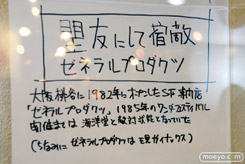 盟友にして宿敵
ゼネラルプロダクツ
大阪桃谷に1982年にオープンしたSF専門店
「ゼネラルプロダクツ」。1985年のワンダーフェスティバル
開催までは海洋堂と敵対状態となっていた
(ちなみに ゼネラルプロダクツは現ガイナックス)
moeyo.com